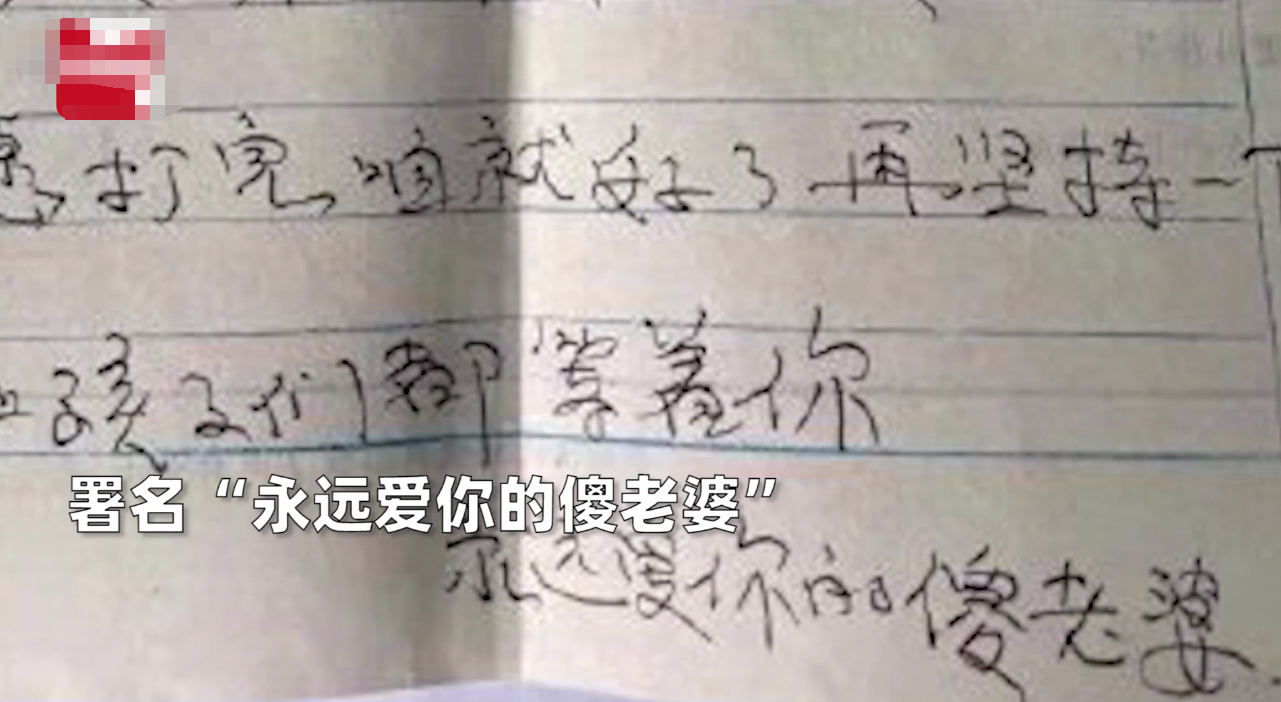 打完咱就好了再坚持一
孩子们都等着你
署名“永远爱你的傻老婆”
永远爱你的傻老婆